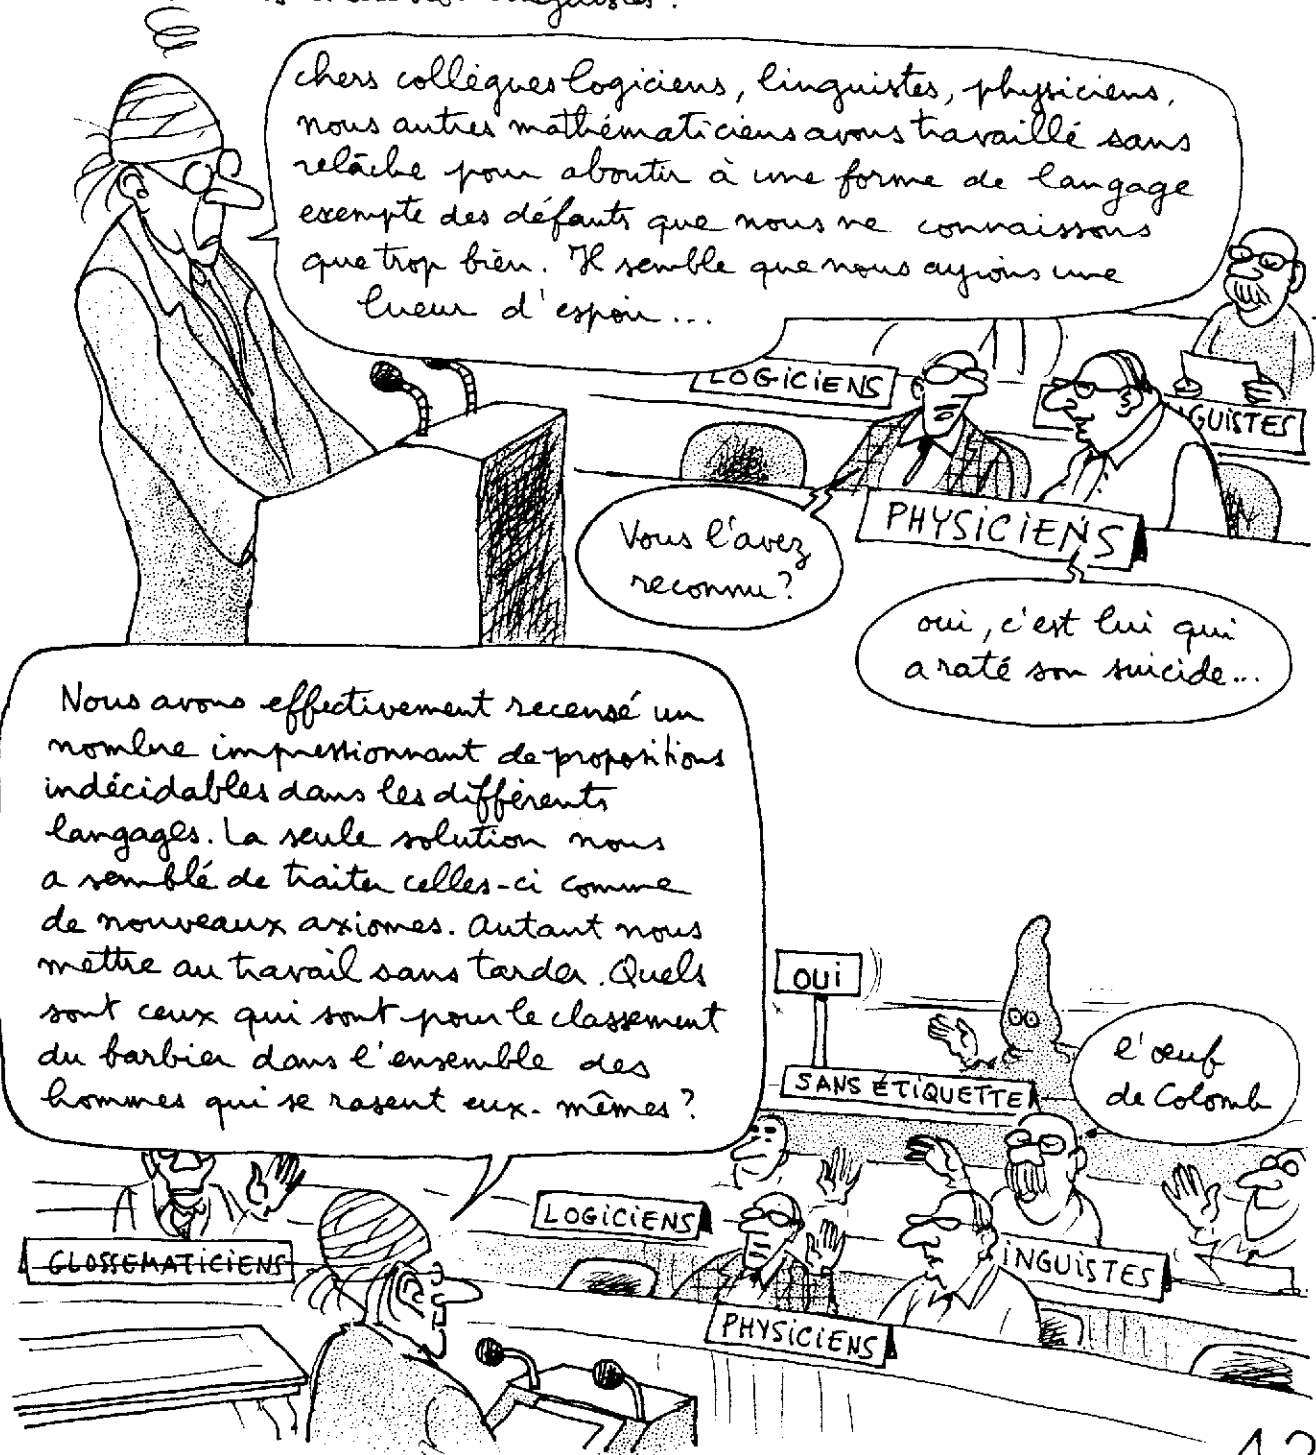 linguistes.
chers collègues logiciens, linguistes, physiciens,
nous autres mathématiciens avons travaillé sans
relâche pour aboutir à une forme de langage
exempte des défauts que nous ne connaissons
que trop bien. Il semble que nous ayions une
lueur d'espoir...
LOGICIENS
GUISTES
PHYSICIENS
Vous l'avez
reconnu?
oui, c'est lui qui
a raté son suicide...
Nous avons effectivement recensé un
nombre impressionnant de propositions
indécidables dans les différents
langages. La seule solution nous
a semblé de traiter celles-ci comme
de nouveaux axiomes. Autant nous
mettre au travail sans tarder. Quels
sont ceux qui sont pour le classement
du barbier dans l'ensemble des
hommes qui se rasent eux-mêmes?
OUi
SANS ÉTIQUETTE
l'œuf
de Colomb
GLOSSEMATICIENS
LOGICIENS
INGUISTES
PHYSICIENS